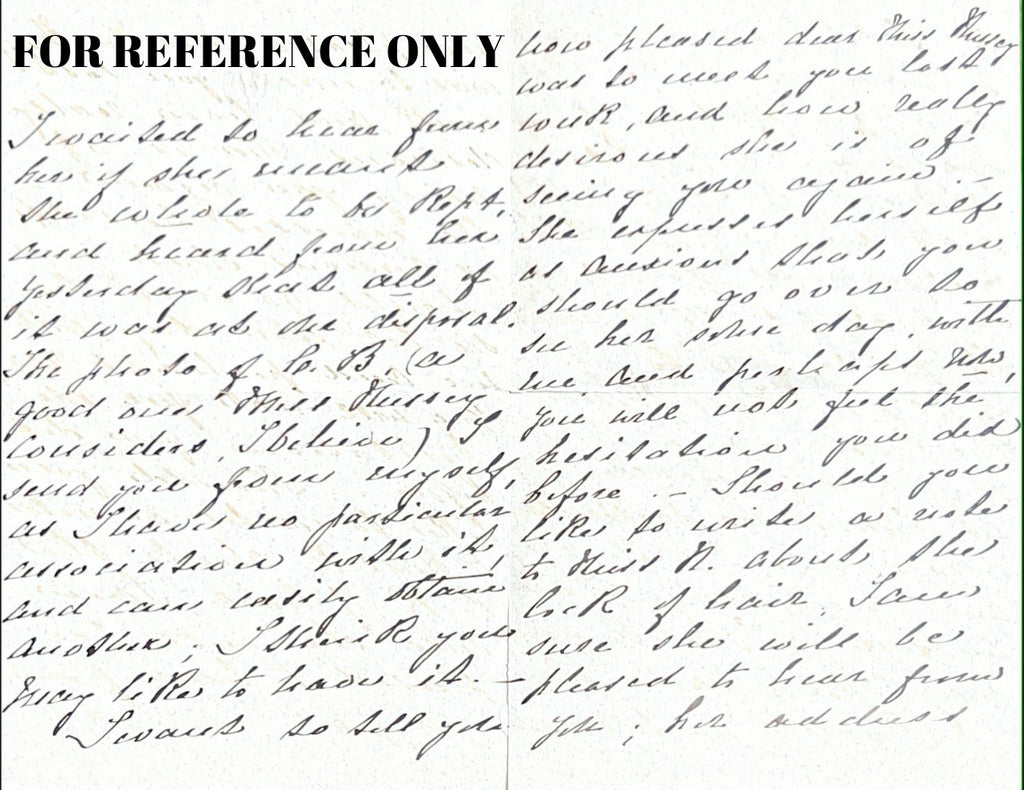 FOR REFERENCE ONLY
I waited to hear from
her if she meant
the whole to be kept,
and heard from her
yesterday that all of
it was at the disposal.
The photo of C. B. (a
good one Miss Nussey
considers, I believe) I
send you from myself,
as I have no particular
association with it,
and can easily obtain
another; I think you
may like to have it. —
I want to tell you
how pleased dear Miss Nussey
was to meet you last
week, and how really
desirous she is of
seeing you again. —
She expresses herself
as anxious that you
should go over to
see her some day, with
me and perhaps now,
you will not feel the
hesitation you did
before. — Should you
like to write a note
to Miss N. about the
lock of hair, I am
sure she will be
pleased to hear from
you; her address